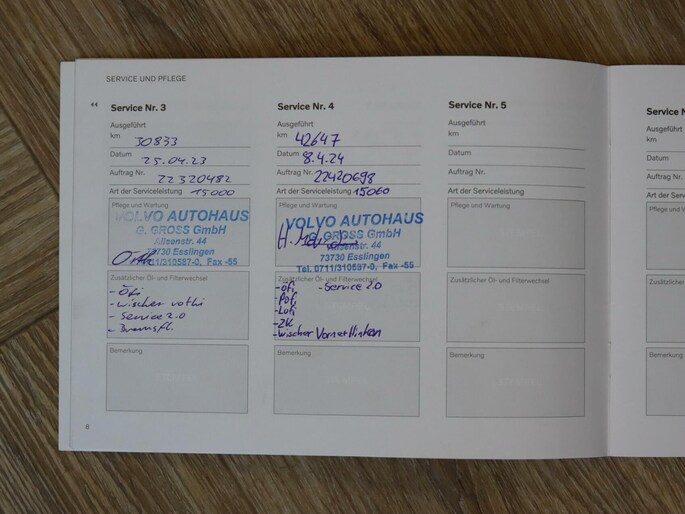 SERVICE UND PFLEGE
Service Nr. 3
Ausgeführt
km 30833
Datum 25.04.23
Auftrag Nr. 22320482
Art der Serviceleistung 15000
Pflege und Wartung
VOLVO AUTOHAUS
G. GROSS GmbH
Alleenstr. 44
73730 Esslingen
Tel. 0711/310587-0, Fax -55
Zusätzlicher Öl- und Filterwechsel
- Öfi
- Wischer vo+hi
- Service 2.0
- Bremsfl.
Bemerkung
8
Service Nr. 4
Ausgeführt
km 42647
Datum 8.4.24
Auftrag Nr. 22420698
Art der Serviceleistung 15000
Pflege und Wartung
VOLVO AUTOHAUS
G. GROSS GmbH
Alleenstr. 44
73730 Esslingen
Tel. 0711/310587-0, Fax -55
Zusätzlicher Öl- und Filterwechsel
- Öfi - Service 2.0
- Pofi
- Lufi
- ZK
- Wischer Vorne+Hinten
Bemerkung
Service Nr. 5
Ausgeführt
km
Datum
Auftrag Nr.
Art der Serviceleistung
Pflege und Wartung
Zusätzlicher Öl- und Filterwechsel
Bemerkung
Service N
Ausgeführt
km
Datum
Auftrag Nr.
Art der Se
Pflege und W
Zusätzlicher
Bemerkung